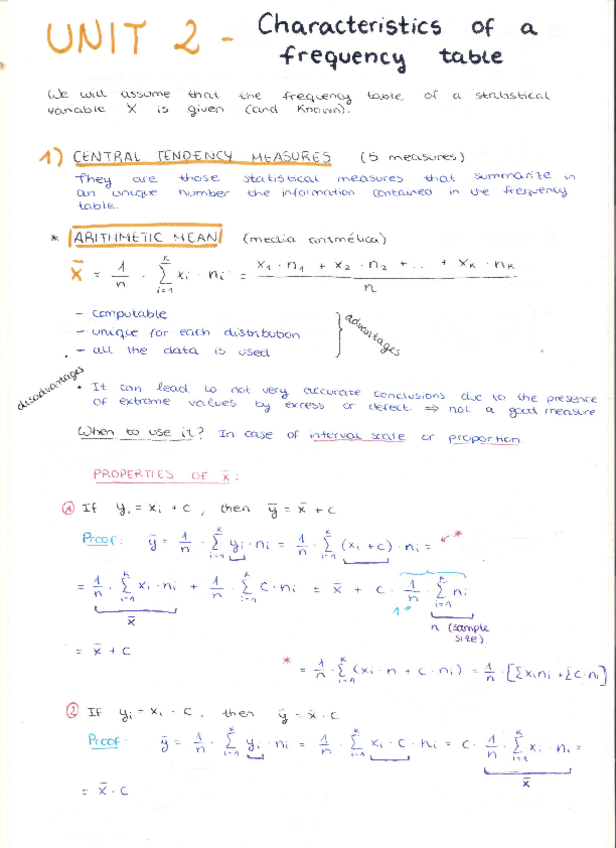 UNIT 2 - Characteristics of a
frequency table
We will assume that the frequency table of a statistical
variable X is given (and known).
1) CENTRAL TENDENCY MEASURES (5 measures)
They are those statistical measures that summarize in
an unique number the information contained in the frequency
table.
* ARITHMETIC MEAN (media aritmética)
x̄ = 1/n · Σ_{i=1}^{k} xi · ni = (x1 · n1 + x2 · n2 + ... + xk · nk) / n
- computable
- unique for each distribution
- all the data is used
advantages
disadvantages
• It can lead to not very accurate conclusions due to the presence
of extreme values by excess or defect. ⇒ not a good measure
When to use it? In case of interval scale or proportion
PROPERTIES OF x̄:
① If yi = xi + c, then ȳ = x̄ + c
Proof: ȳ = 1/n · Σ_{i=1}^{k} yi · ni = 1/n · Σ_{i=1}^{k} (xi + c) · ni = *
= 1/n · Σ_{i=1}^{k} xi · ni + 1/n · Σ_{i=1}^{k} c · ni = x̄ + c · 1/n · Σ_{i=1}^{k} ni
x̄ 1 n (sample
size)
= x̄ + c
* = 1/n · Σ_{i=1}^{k} (xi · n + c · ni) = 1/n · [Σxini + Σc·ni]
② If yi = xi · c, then ȳ = x̄ · c
Proof: ȳ = 1/n · Σ_{i=1}^{k} yi · ni = 1/n · Σ_{i=1}^{k} xi · c · ni = c · 1/n · Σ_{i=1}^{k} xi · ni =
x̄
= x̄ · c